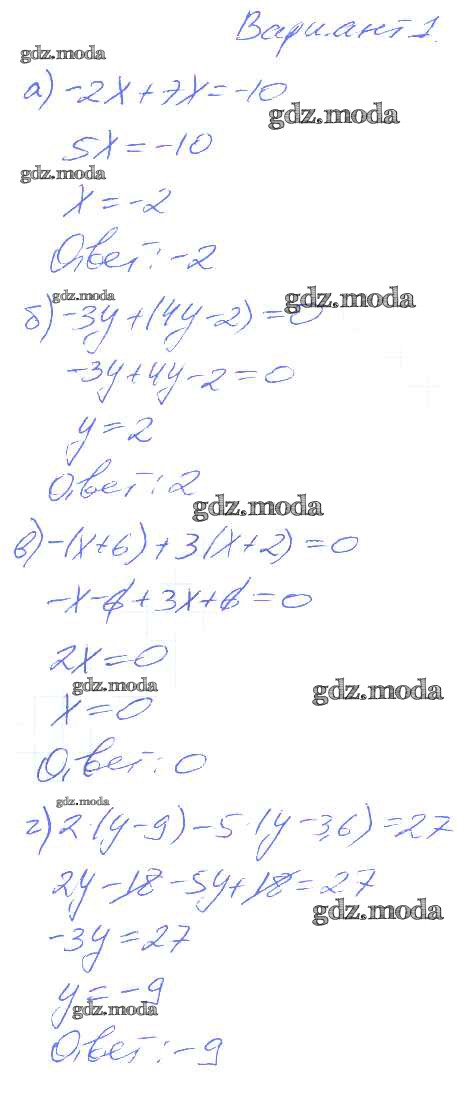 Вариант 1.
gdz.moda
а) -2x+7x=-10
gdz.moda
5x=-10
gdz.moda
x=-2
Ответ: -2
gdz.moda
gdz.moda
б) -3y+(4y-2)=0
-3y+4y-2=0
y=2
Ответ: 2
gdz.moda
в) -(x+6)+3(x+2)=0
-x-6+3x+6=0
2x=0
gdz.moda
gdz.moda
x=0
Ответ: 0
gdz.moda
г) 2·(y-9)-5·(y-3,6)=27
2y-18-5y+18=27
gdz.moda
-3y=27
y=-9
gdz.moda
Ответ: -9